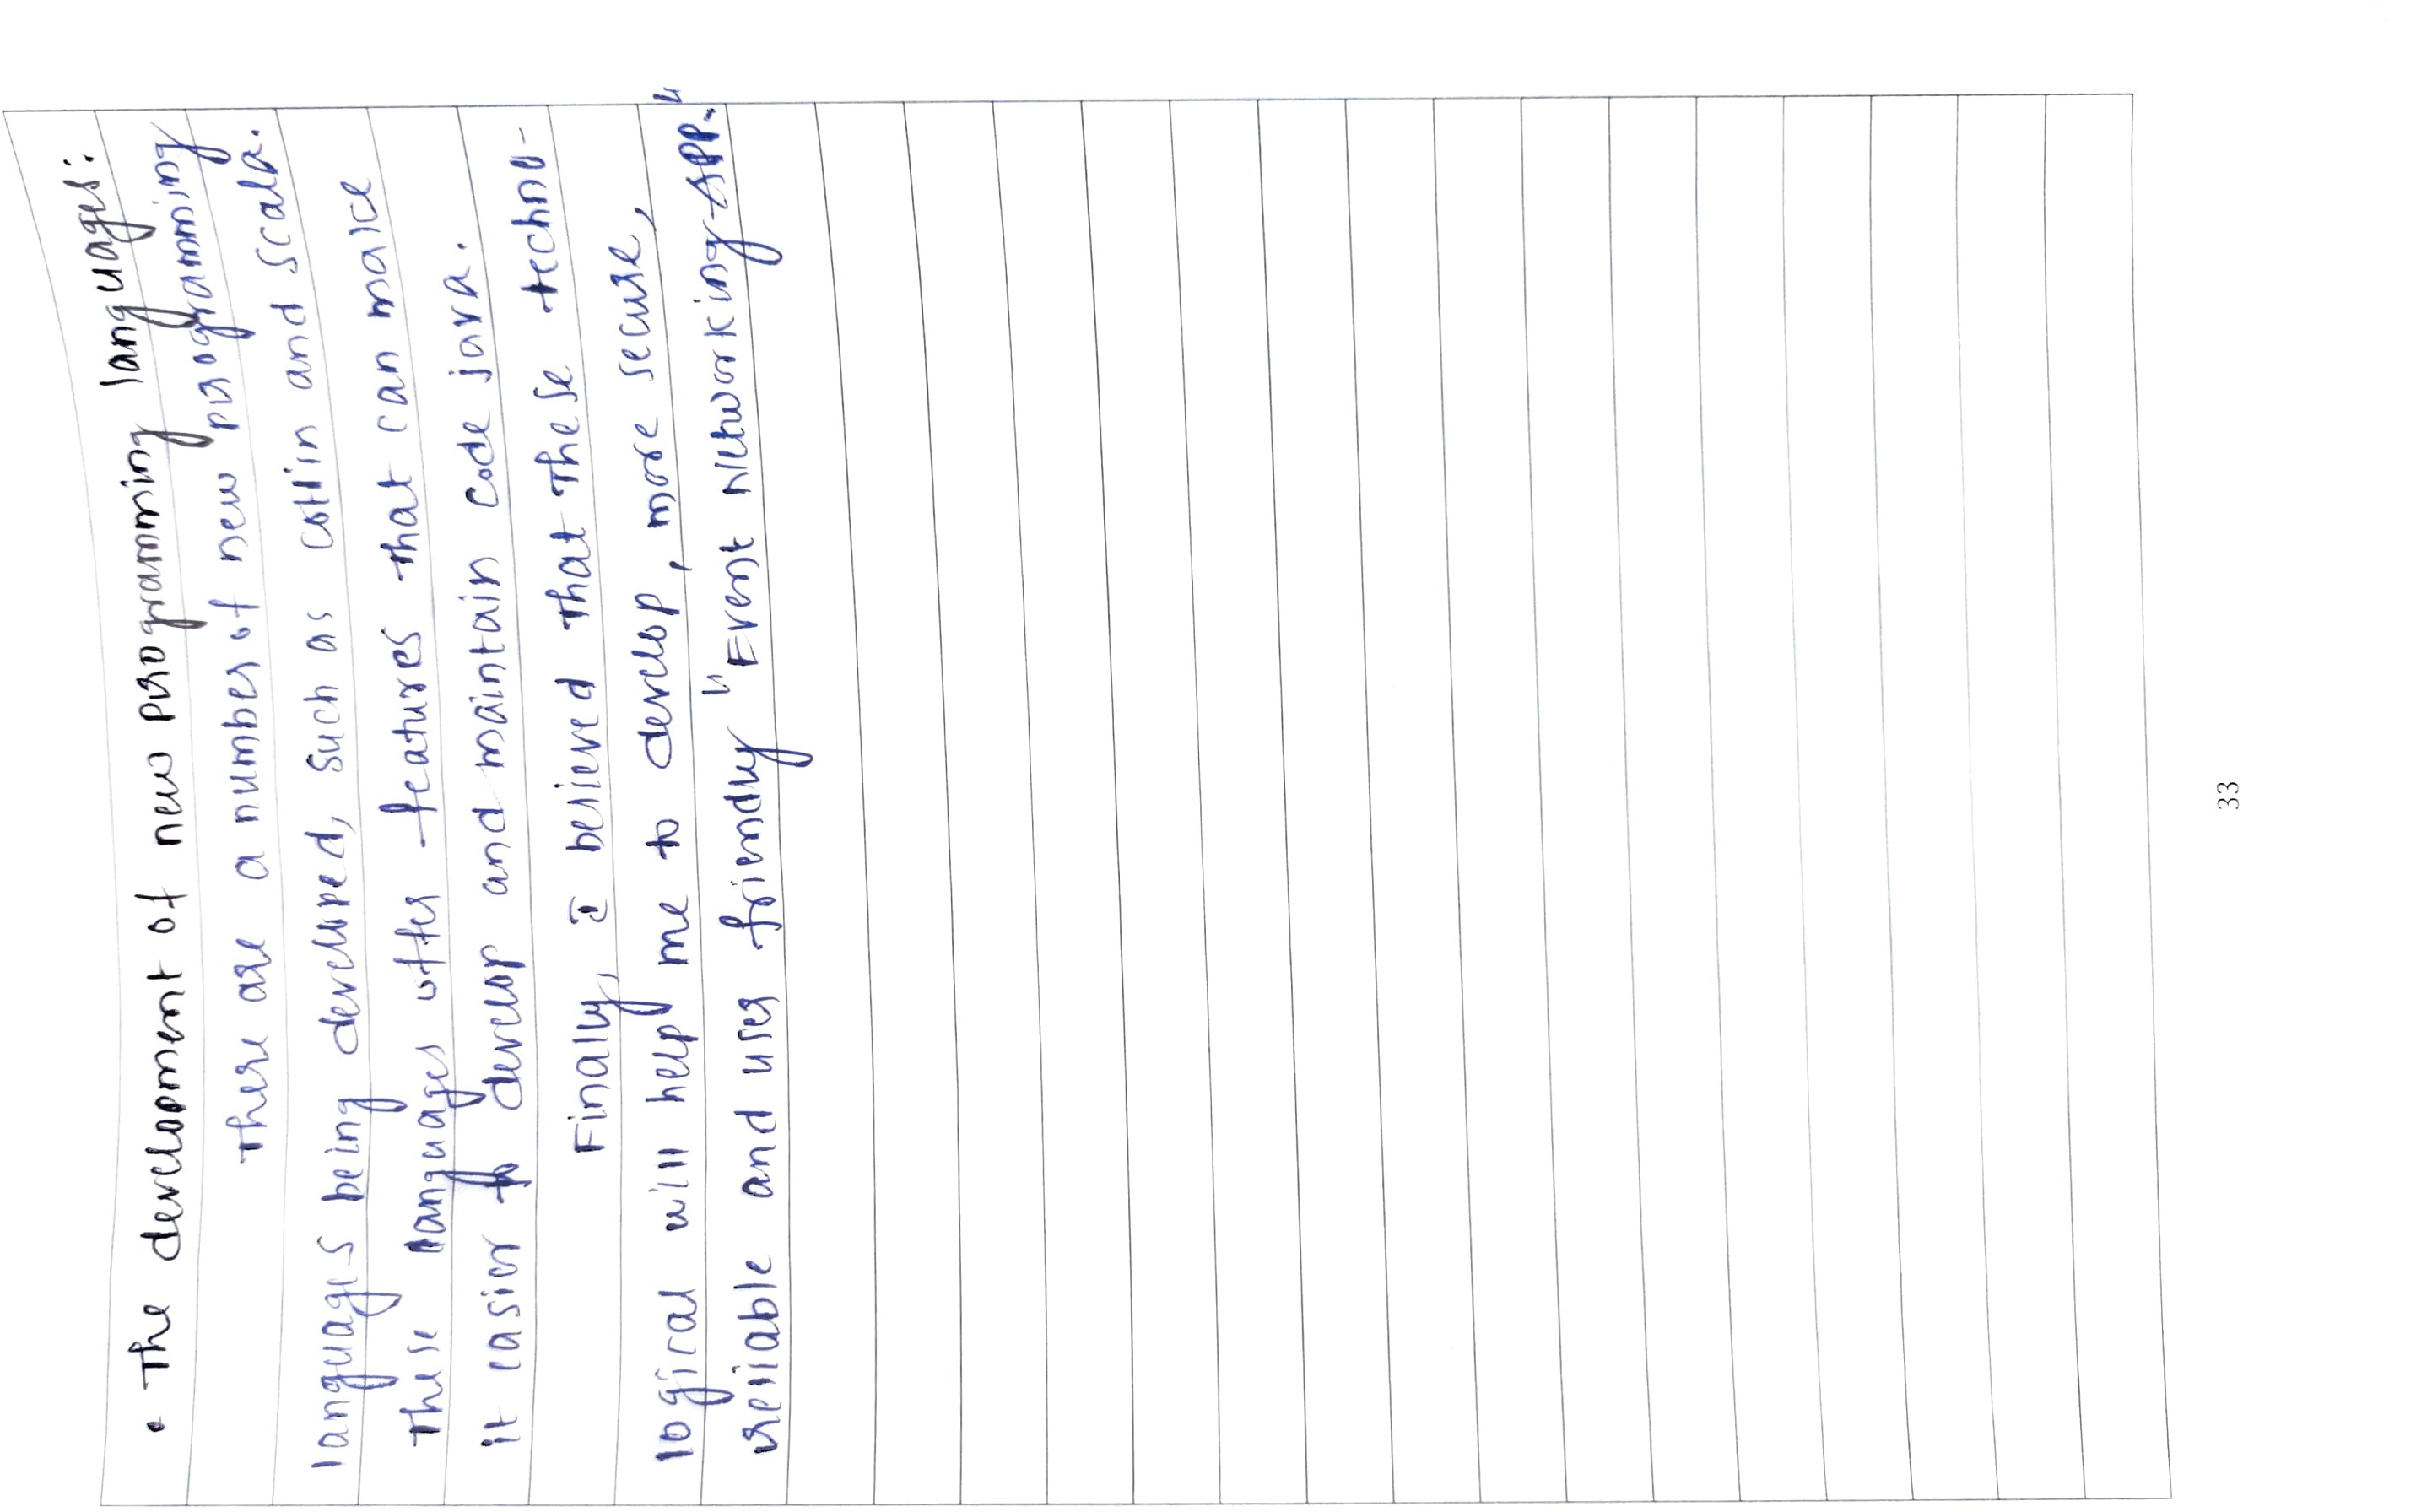 • The development of new programming languages:
There are a number of new programming
languages being developed, such as cottin and scala.
These languages offer features that can make
it easier to develop and maintain code java.
Finally, I believed that these techno-
logical will help me to develop, more secure,
reliable and user friendly "Event Networking App."
33